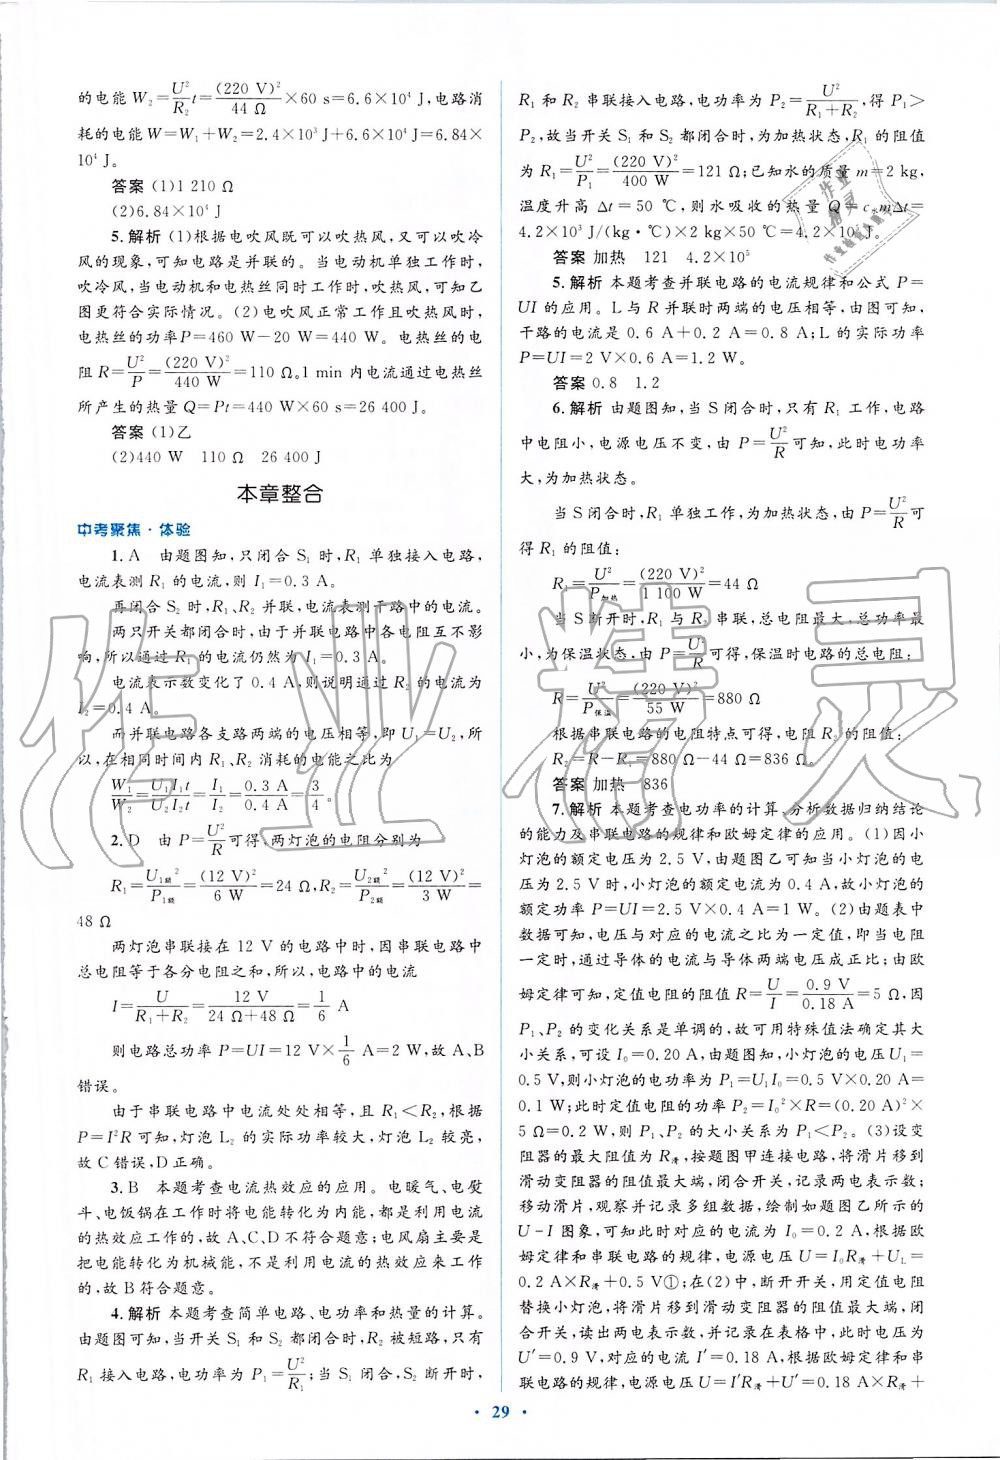 的电能 W₂=U²/R₂ t=(220 V)²/44 Ω×60 s=6.6×10⁴ J,电路消
耗的电能 W=W₁+W₂=2.4×10³ J+6.6×10⁴ J=6.84×
10⁴ J。
答案 (1)1 210 Ω
(2)6.84×10⁴ J
5.解析 (1)根据电吹风既可以吹热风,又可以吹冷
风的现象,可知电路是并联的。当电动机单独工作时,
吹冷风,当电动机和电热丝同时工作时,吹热风,可知乙
图更符合实际情况。(2)电吹风正常工作且吹热风时,
电热丝的功率 P=460 W-20 W=440 W。电热丝的电
阻 R=U²/P=(220 V)²/440 W=110 Ω。1 min 内电流通过电热丝
所产生的热量 Q=Pt=440 W×60 s=26 400 J。
答案 (1)乙
(2)440 W 110 Ω 26 400 J
本章整合
中考聚焦·体验
1. A 由题图知,只闭合 S₁ 时,R₁ 单独接入电路,
电流表测 R₁ 的电流,则 I₁=0.3 A。
再闭合 S₂ 时,R₁、R₂ 并联,电流表测干路中的电流。
两只开关都闭合时,由于并联电路中各电阻互不影
响,所以通过 R₁ 的电流仍然为 I₁=0.3 A。
电流表示数变化了 0.4 A,则说明通过 R₂ 的电流为
I₂=0.4 A。
而并联电路各支路两端的电压相等,即 U₁=U₂,所
以,在相同时间内 R₁、R₂ 消耗的电能之比为
W₁/W₂=U₁I₁t/U₂I₂t=I₁/I₂=0.3 A/0.4 A=3/4。
2. D 由 P=U²/R可得,两灯泡的电阻分别为
R₁=U₁额²/P₁额=(12 V)²/6 W=24 Ω,R₂=U₂额²/P₂额=(12 V)²/3 W=
48 Ω
两灯泡串联接在 12 V 的电路中时,因串联电路中
总电阻等于各分电阻之和,所以,电路中的电流
I=U/(R₁+R₂)=12 V/(24 Ω+48 Ω)=1/6 A
则电路总功率 P=UI=12 V×1/6 A=2 W,故 A、B
错误。
由于串联电路中电流处处相等,且 R₁<R₂,根据
P=I²R 可知,灯泡 L₂ 的实际功率较大,灯泡 L₂ 较亮,
故 C 错误,D 正确。
3. B 本题考查电流热效应的应用。电暖气、电熨
斗、电饭锅在工作时将电能转化为内能,都是利用电流
的热效应工作的,故 A、C、D 不符合题意;电风扇主要是
把电能转化为机械能,不是利用电流的热效应来工作
的,故 B 符合题意。
4.解析 本题考查简单电路、电功率和热量的计算。
由题图可知,当开关 S₁ 和 S₂ 都闭合时,R₂ 被短路,只有
R₁ 接入电路,电功率为 P₁=U²/R₁;当 S₁ 闭合、S₂ 断开时,
R₁ 和 R₂ 串联接入电路,电功率为 P₂=U²/(R₁+R₂),得 P₁>
P₂,故当开关 S₁ 和 S₂ 都闭合时,为加热状态,R₁ 的阻值
为 R₁=U²/P₁=(220 V)²/400 W=121 Ω;已知水的质量 m=2 kg,
温度升高 Δt=50 ℃,则水吸收的热量 Q=c水mΔt=
4.2×10³ J/(kg·℃)×2 kg×50 ℃=4.2×10⁵ J。
答案 加热 121 4.2×10⁵
5.解析 本题考查并联电路的电流规律和公式 P=
UI 的应用。L 与 R 并联时两端的电压相等,由图可知,
干路的电流是 0.6 A+0.2 A=0.8 A;L 的实际功率
P=UI=2 V×0.6 A=1.2 W。
答案 0.8 1.2
6.解析 由题图知,当 S 闭合时,只有 R₁ 工作,电路
中电阻小,电源电压不变,由 P=U²/R可知,此时电功率
大,为加热状态。
当 S 闭合时,R₁ 单独工作,为加热状态,由 P=U²/R可
得 R₁ 的阻值:
R₁=U²/P加热=(220 V)²/1 100 W=44 Ω
当 S 断开时,R₁ 与 R₂ 串联,总电阻最大,总功率最
小,为保温状态,由 P=U²/R可得,保温时电路的总电阻:
R=U²/P保温=(220 V)²/55 W=880 Ω
根据串联电路的电阻特点可得,电阻 R₂ 的阻值:
R₂=R-R₁=880 Ω-44 Ω=836 Ω。
答案 加热 836
7.解析 本题考查电功率的计算、分析数据归纳结论
的能力及串联电路的规律和欧姆定律的应用。(1)因小
灯泡的额定电压为 2.5 V,由题图乙可知当小灯泡的电
压为 2.5 V 时,小灯泡的额定电流为 0.4 A,故小灯泡的
额定功率 P=UI=2.5 V×0.4 A=1 W。(2)由题表中
数据可知,电压与对应的电流之比为一定值,即当电阻
一定时,通过导体的电流与导体两端电压成正比;由欧
姆定律可知,定值电阻的阻值 R=U/I=0.9 V/0.18 A=5 Ω,因
P₁、P₂ 的变化关系是单调的,故可用特殊值法确定其大
小关系,可设 I₀=0.20 A,由题图知,小灯泡的电压 U₁=
0.5 V,则小灯泡的电功率为 P₁=U₁I₀=0.5 V×0.20 A=
0.1 W;此时定值电阻的功率 P₂=I₀²×R=(0.20 A)²×
5 Ω=0.2 W,则 P₁、P₂ 的大小关系为 P₁<P₂。(3)设变
阻器的最大阻值为 R滑,按题图甲连接电路,将滑片移到
滑动变阻器的阻值最大端,闭合开关,记录两电表示数;
移动滑片,观察并记录多组数据,绘制如题图乙所示的
U-I 图象,可知此时对应的电流为 I₀=0.2 A,根据欧
姆定律和串联电路的规律,电源电压 U=I₀R滑+U_L=
0.2 A×R滑+0.5 V①;在(2)中,断开开关,用定值电阻
替换小灯泡,将滑片移到滑动变阻器的阻值最大端,闭
合开关,读出两电表示数,并记录在表格中,此时电压为
U′=0.9 V,对应的电流 I′=0.18 A,根据欧姆定律和串
联电路的规律,电源电压 U=I′R滑+U′=0.18 A×R滑+
· 29 ·
作业精灵